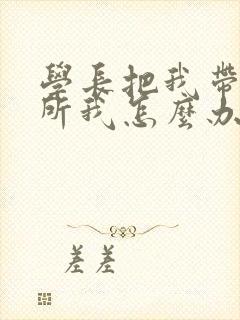 學長把我帶
所我怎麼办
差差